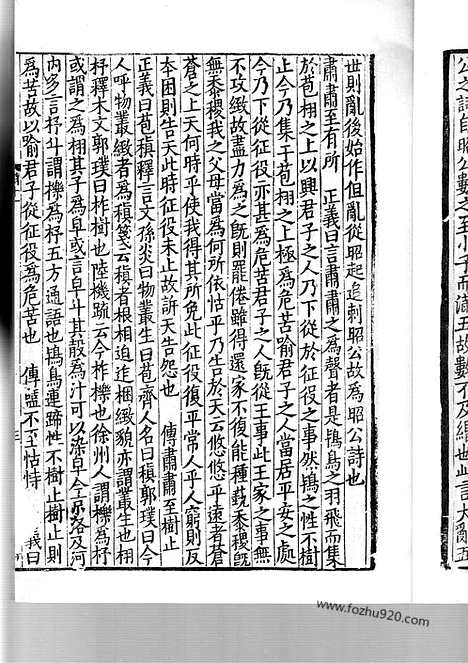 公之詩自昭公數之至小子而滿五故數不及緡也此言大亂五
世則亂後始作但亂從昭起追刺昭公故為昭公詩也
肅肅至有所　正義曰言肅肅之為聲者是鴇鳥之羽飛而集
於苞栩之上以興君子之人乃下從於征役之事然鴇之性不樹
止今乃集于苞栩之上極為危苦喻君子之人當居平安之處
今乃下從征役亦甚為危苦君子之人既從王事此王家之事無
不攻緻故盡力為之既則罷倦雖得還家不復能種蓺黍稷既
無黍稷我之父母當為何所依怙乎乃告於天云悠悠乎遠者蒼
蒼之上天何時乎使我得其所免此征役復平常人乎人窮則反
本困則告天此時征役未止故訴天告怨也　傳肅肅至樹止
正義曰苞稹釋言文孫炎曰物叢生曰苞齊人名曰稹郭璞曰今
人呼物叢緻者為稹箋云稹者根相迫迮梱緻貌亦謂叢生也栩
杼釋木文郭璞曰柞樹也陸機疏云今柞櫟也徐州人謂櫟為杼
或謂之為栩其子為皁或言皁斗其殼為汁可以染皁今京洛及河
內多言杼斗謂櫟為杼五方通語也鴇鳥連蹄性不樹止樹止則
為苦故以喻君子從征役為危苦也　傳盬不至怙恃　義曰
www.fozhu920.com